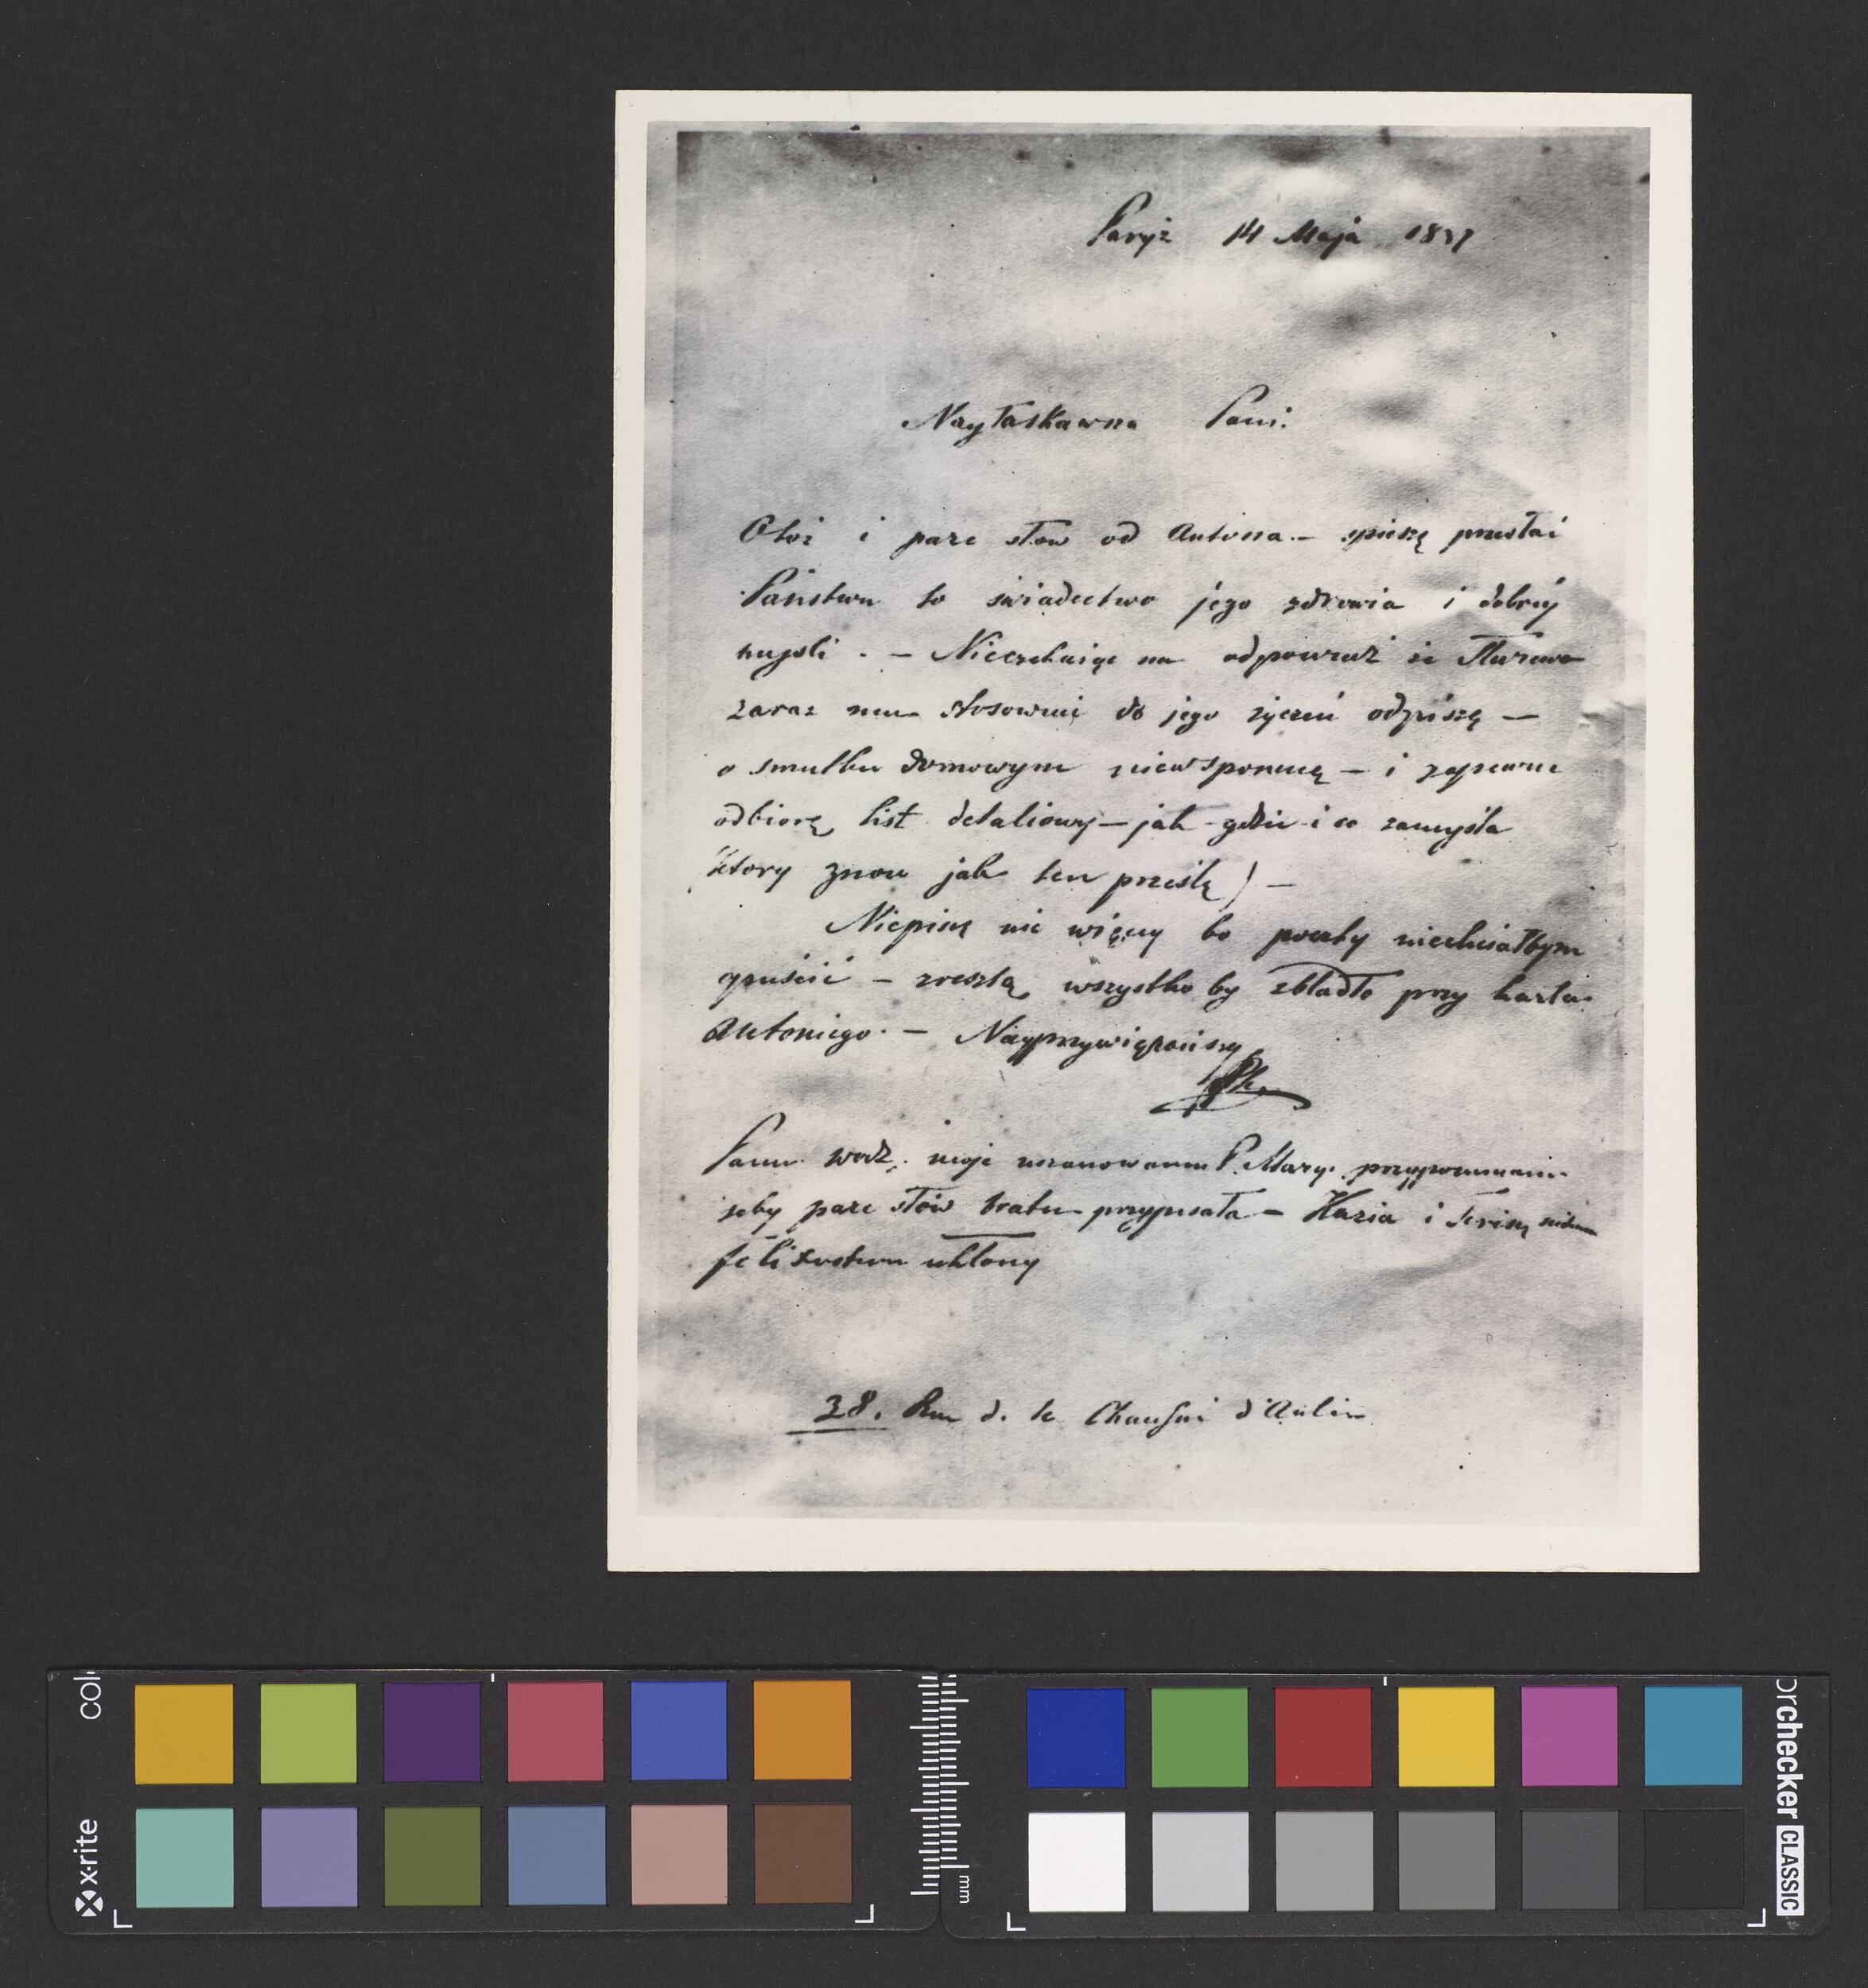 Paryż 14 Maja 1837
Nayłaskawsza Pani.
Otoż i parę słow od Antosia. — spieszę przesłać
Państwu to świadectwo jego zdrowia i dobréy
myśli. — Nieczekaiąc na odpowiedź ze Służewa
zaraz mu stosownie do jego życzeń odpiszę —
o smutku domowym niewspomnę — i zapewne
odbiorę list detaliczny — jak gdzie i co zamyśla
(ktory znow jak ten prześlę) —
Niepiszę nic więcey bo poczty niechciałbym
opuścić — zresztą wszystko by zbladło przy kartce
Antoniego. — Nayprzywiązańszy
Ch.
Panu Wodz. moje uszanowanie P. Mary. przypominam
żeby parę słów bratu przypisała — Kazia i ściskam
ukłony
38. Rue d. la Chaussée d'Antin
x-rite
mm
colorchecker CLASSIC